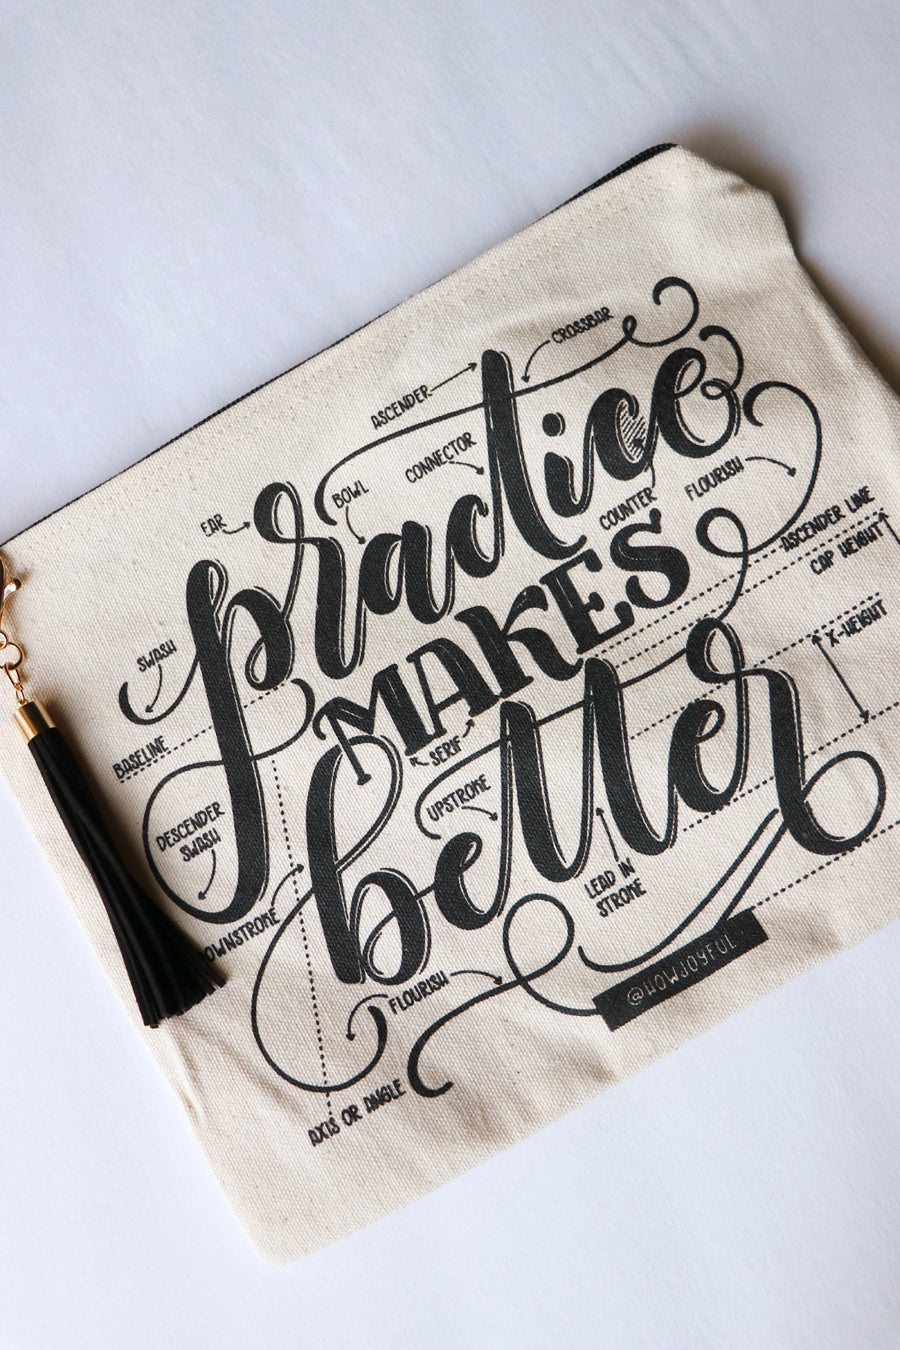 CROSSBAR
ASCENDER
CONNECTOR
BOWL
EAR
practice
COUNTER
FLOURISH
ASCENDER LINE
CAP HEIGHT
X-HEIGHT
SWASH
MAKES
SERIF
BASELINE
DESCENDER
SWASH
UPSTROKE
better
LEAD IN
STROKE
DOWNSTROKE
FLOURISH
@HOWJOYFUL
AXIS OR ANGLE